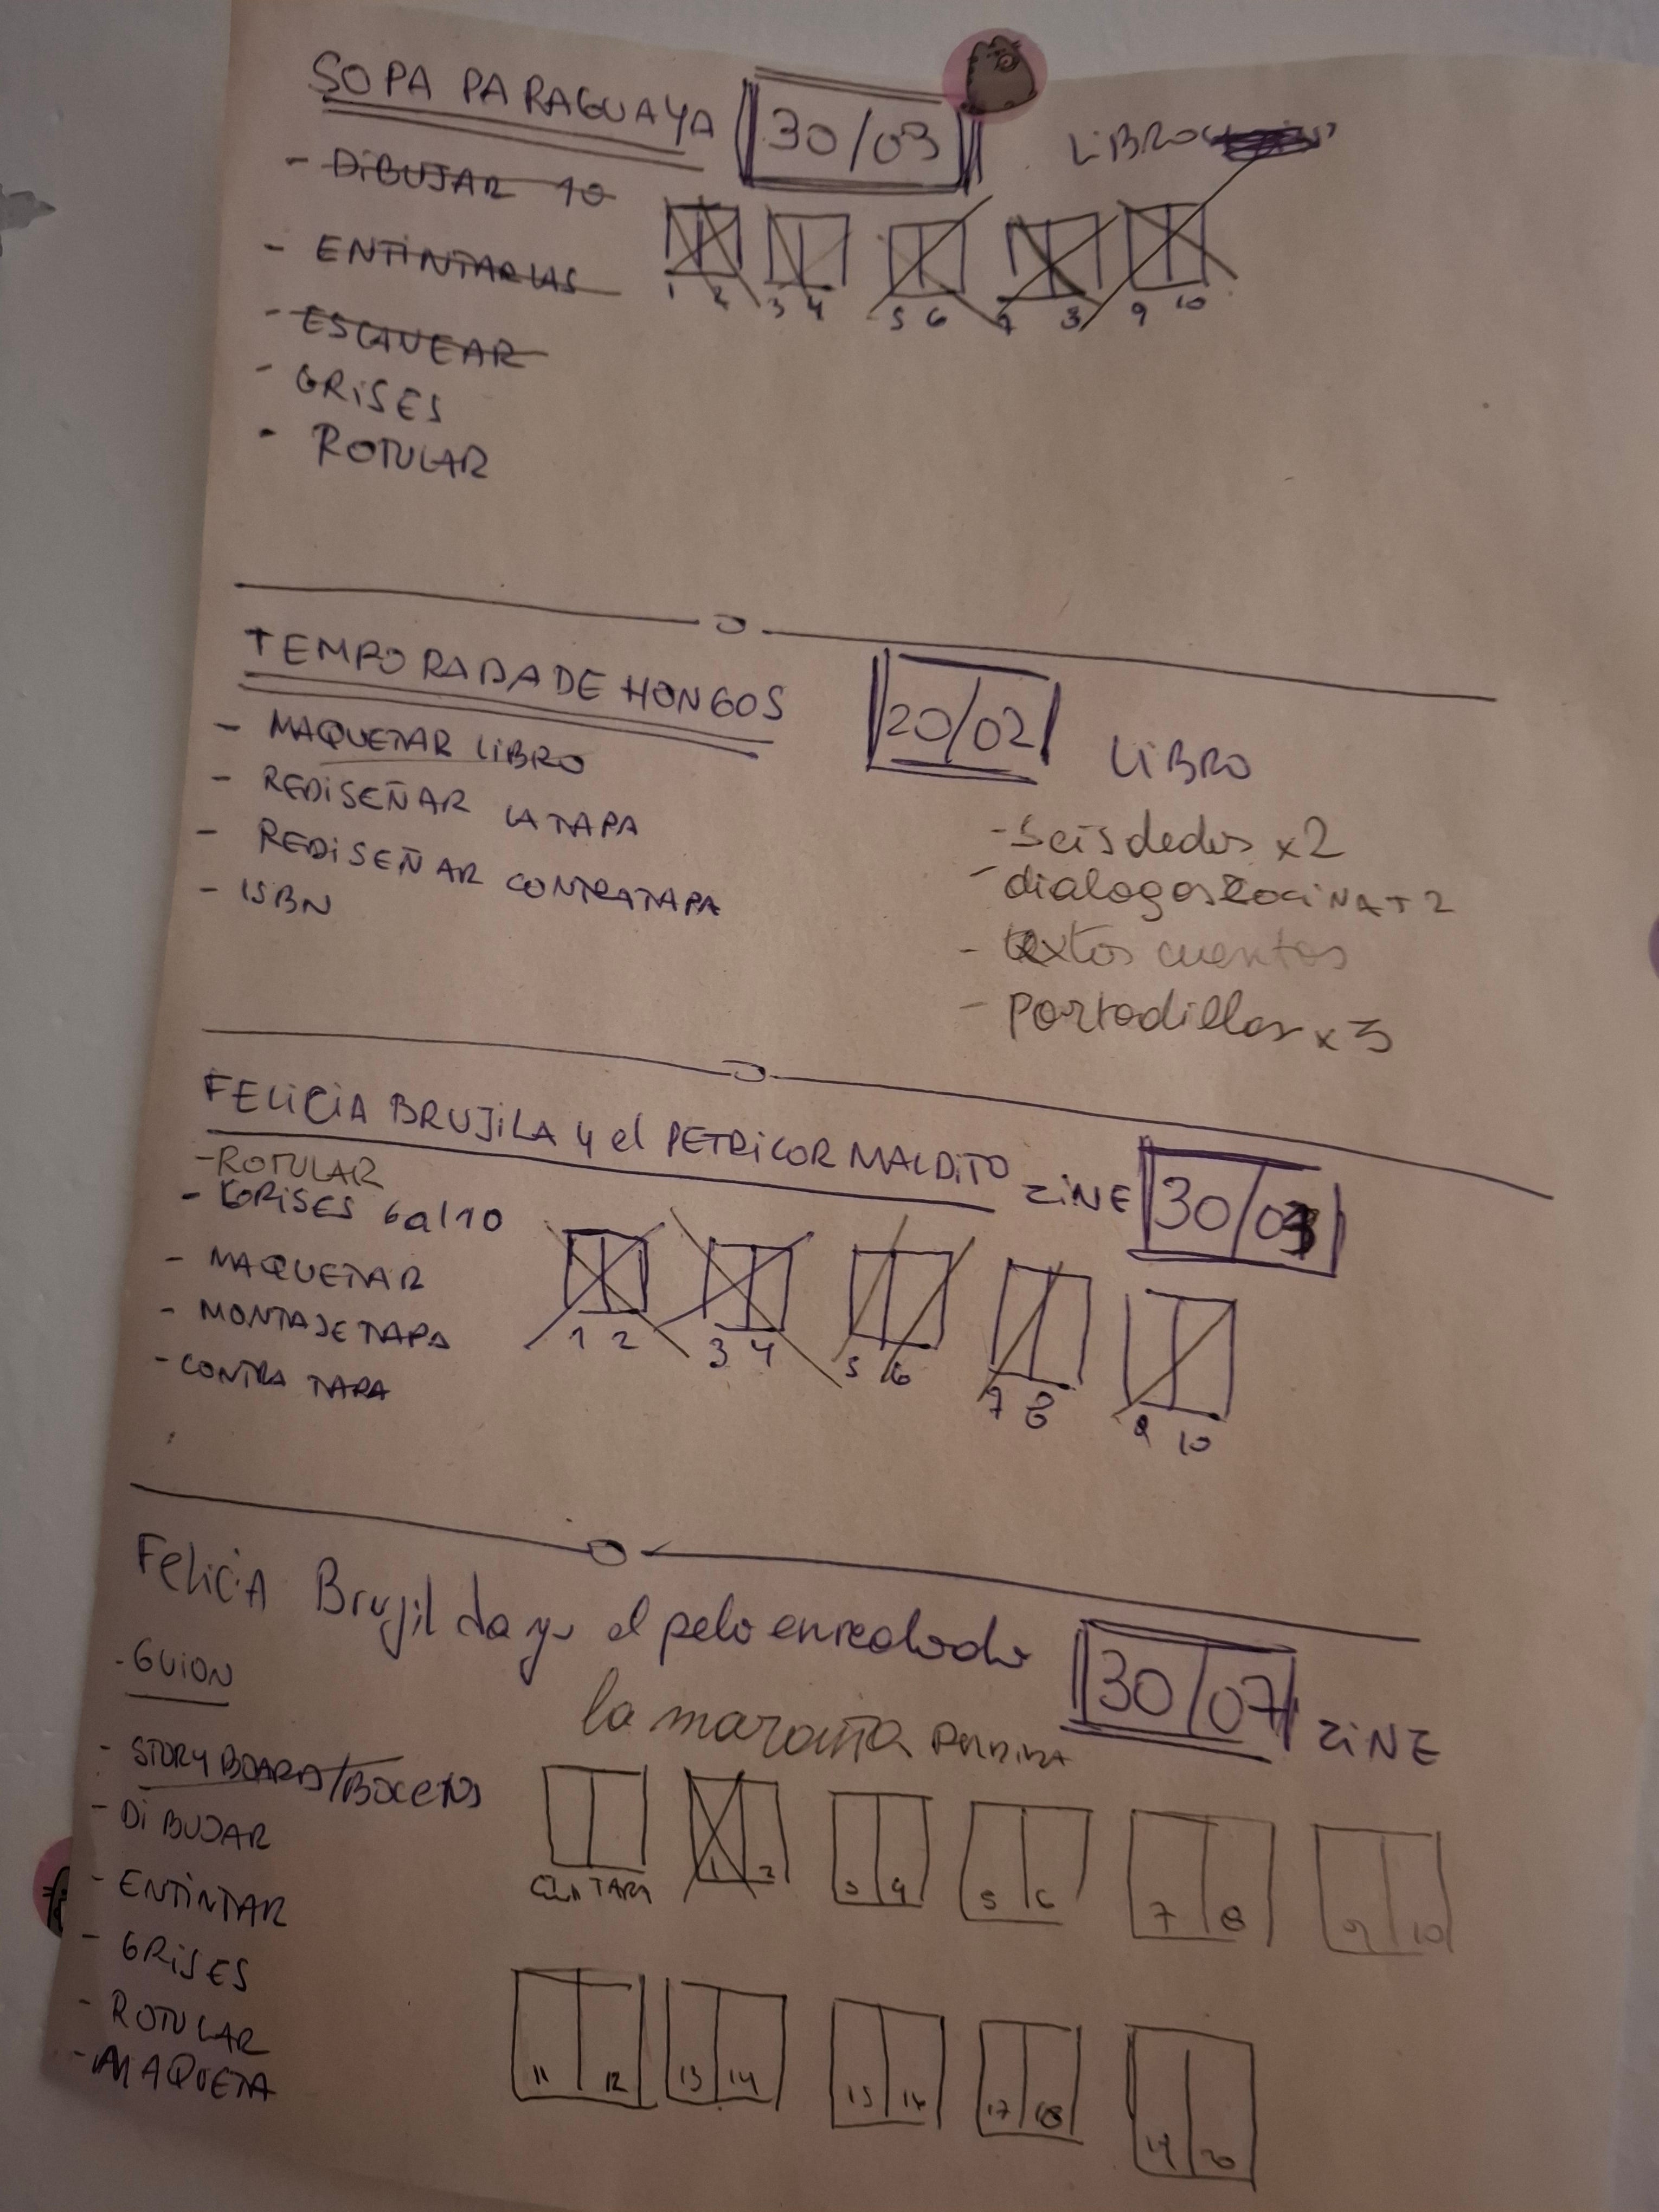 SOPA PARAGUAYA 30/03 LIBRO
- DIBUJAR 10
- ENTINTARLAS
1 2 3 4 5 6 7 8 9 10
- ESCANEAR
- GRISES
- ROTULAR
TEMPORADA DE HONGOS 20/02 LIBRO
- MAQUETAR LIBRO
- REDISEÑAR LA TAPA
- REDISEÑAR CONTRATAPA
- ISBN
- Seisdedos x2
- dialogos COCINA T2
- textos cuentos
- Portadillas x3
FELICIA BRUJILA y el PETRICOR MALDITO ZINE 30/03
- ROTULAR
- GRISES 6 al 10
- MAQUETAR
- MONTAJE TAPA
- CONTRA TAPA
1 2 3 4 5 6 7 8 9 10
Felicia Brujilda y el pelo enredado 30/07 ZINE
la maraña
- GUION
- STORYBOARD/BOCETOS
- DIBUJAR
- ENTINTAR
- GRISES
- ROTULAR
- MAQUETA
TAPA 1 2 3 4 5 6 7 8 9 10
11 12 13 14 15 16 17 18 19 20